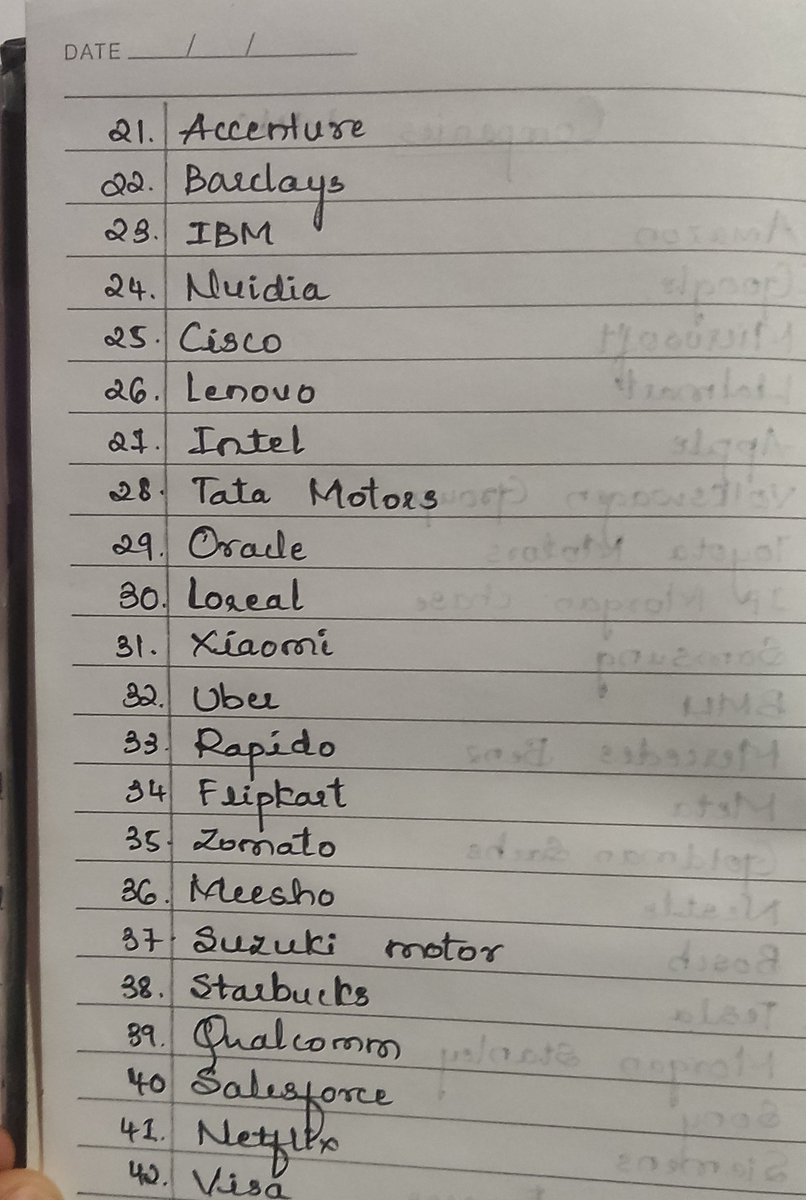 DATE __/__/__
21. Accenture
22. Barclays
23. IBM
24. Nvidia
25. Cisco
26. Lenovo
27. Intel
28. Tata Motors
29. Oracle
30. Loreal
31. Xiaomi
32. Uber
33. Rapido
34 Flipkart
35. Zomato
36. Meesho
37. Suzuki motor
38. Starbucks
39. Qualcomm
40 Salesforce
41. Netflix
42. Visa